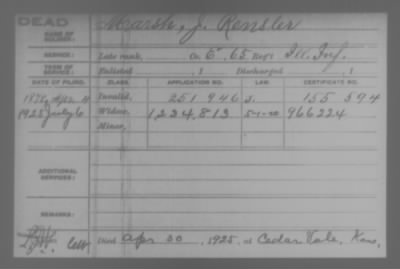 DEAD
NAME OF SOLDIER: Marsh, J. Rensler
SERVICE: Late rank, Co. E, 65 Regt Ill. Inf.
TERM OF SERVICE: Enlisted , 1 Discharged , 1
DATE OF FILING. CLASS. APPLICATION NO. LAW. CERTIFICATE NO.
Invalid, 251 946 155 594
1925 July 6 Widow, 1,234,813 966224
Minor,
ADDITIONAL SERVICES:
REMARKS:
Died Apr 30, 1925, at Cedar Vale, Kans.